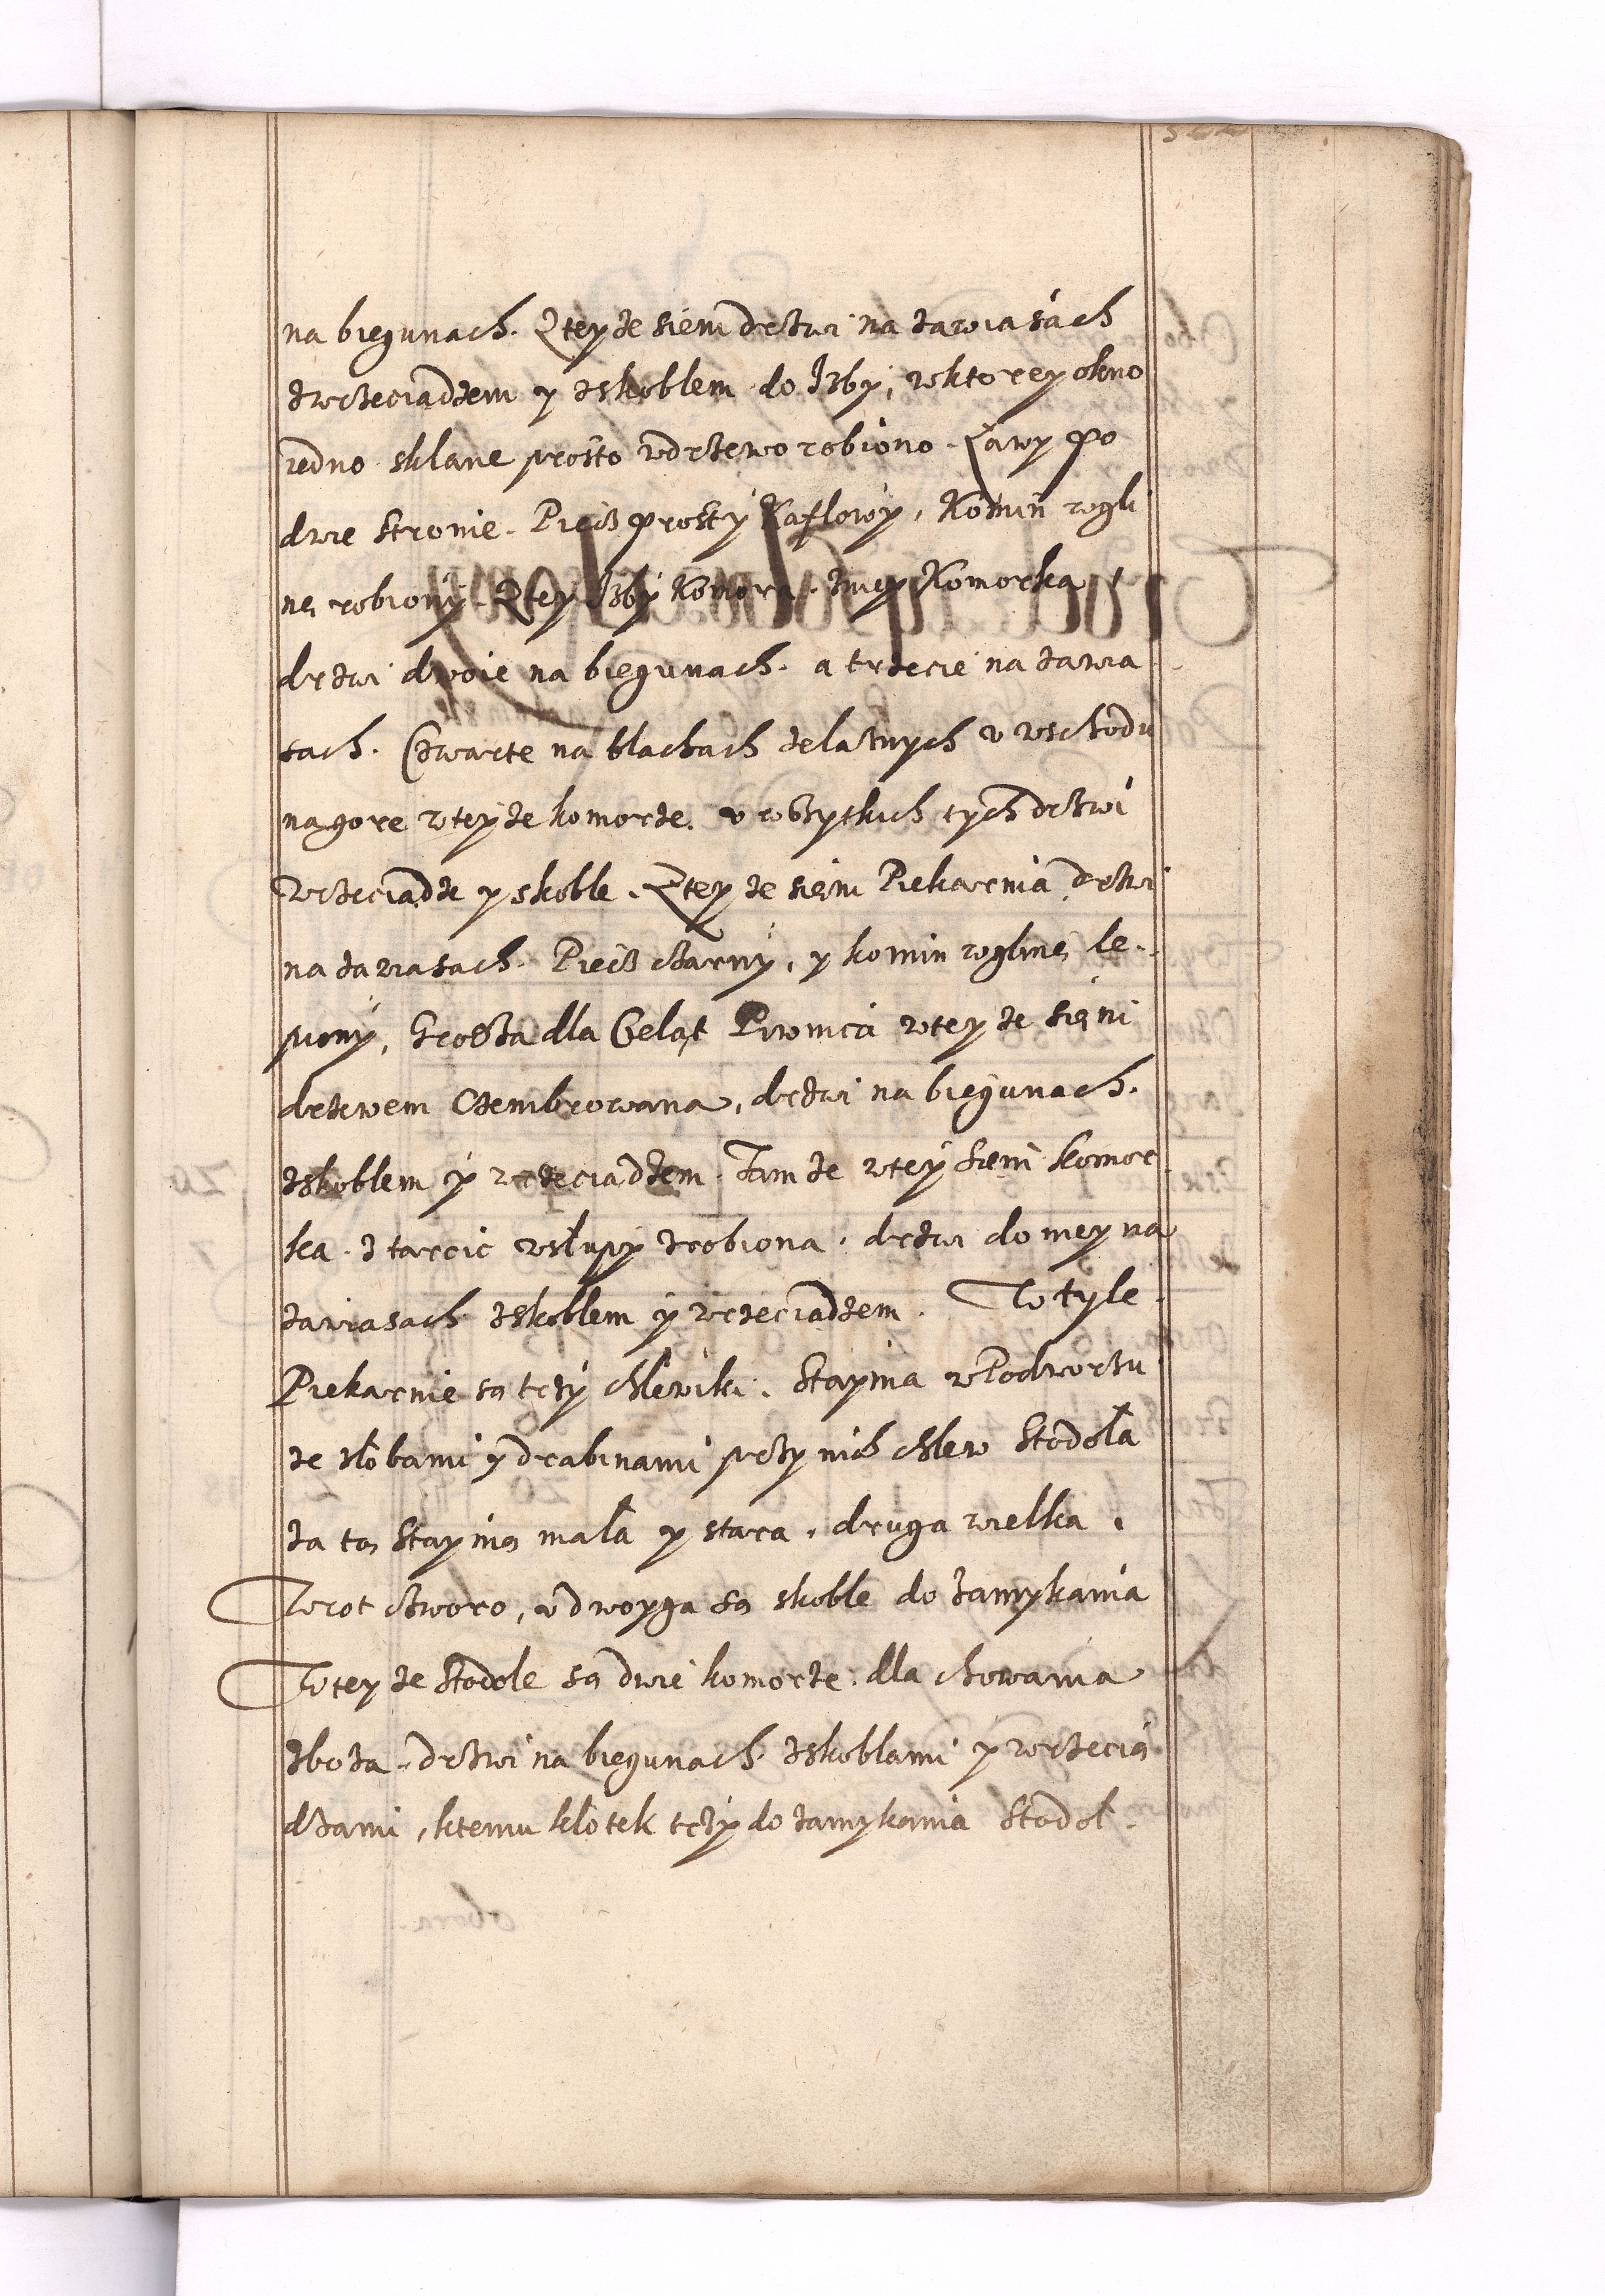 na biegunach. Z teyze sieni drzwi na zawiasach
z wrzeciadzem y z skoblem do Izby, w ktorey okno
iedno sklane prosto w drzewo robiono. Ławy po
dwie stronie. Piecz prosty Kaflowy, Komin w gli
nę robiony. Z tey Izby Komora. z niey Komorka,
drzwi dwoie na biegunach. a trzecie na zawia
sach. Czwarte na blachach zelaznych v wschodu
na gore w teyze komorze. v wszytkich tych drzwi
wrzeciadze y skoble. Z teyze sieni Piekarnia drzwi
na zawiasach. Piecz czarny, y komin w glinę le-
piony, Grodza dla Cieląt Piwnica w teyze sieni
drzewem Czembrowana, drzwi na biegunach.
z skoblem y wrzeciadzem. Tamze w tey sieni komor
ka. z tarcic w słupy zrobiona. drzwi do niey na
zawiasach z skoblem y wrzeciadzem. W tyle
Piekarnie są trzy chlewiki. Staynia w Podworzu
ze złobami y drabinami przy nich chlew Stodoła
za tą Staynią mała y stara. druga wielka.
Wrot czworo, v dwoyga są skoble do zamykania
W teyze Stodole są dwie komorze. dla chowania
zboza. drzwi na biegunach z skoblami y wrzecią
dzami, k temu kłotek trzy do zamykania Stodoł.